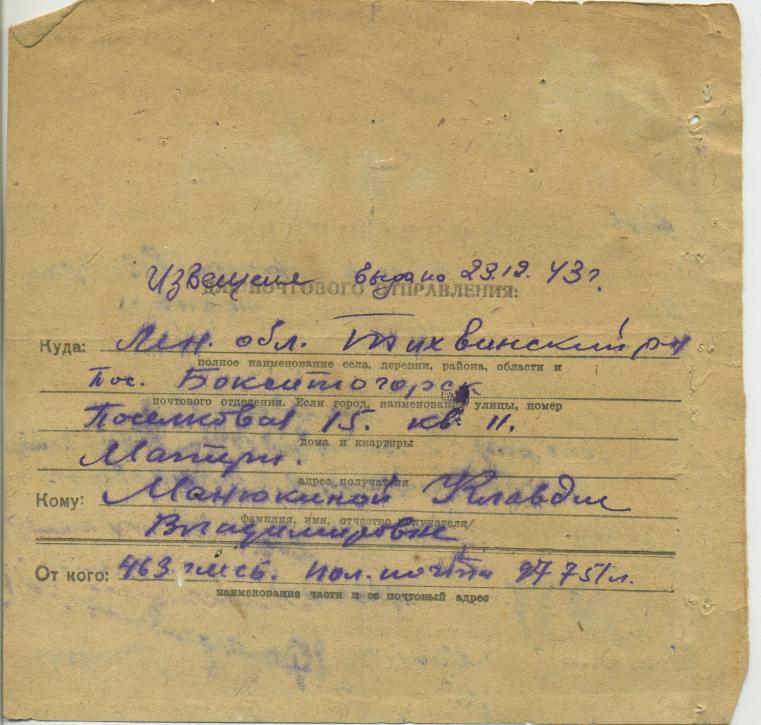 Извещение выдано 23.12.43г.
ДЛЯ ПОЧТОВОГО ОТПРАВЛЕНИЯ:
Куда: Лен. обл. Тихвинский р-н
полное наименование села, деревни, района, области и
Пос. Бокситогорск
почтового отделения. Если город, наименование улицы, номер
Поселковая 15. кв. 11.
дома и квартиры
Матери.
адрес получателя
Кому: Манюкиной Клавдии
фамилия, имя, отчество получателя/
Владимировне
От кого: 463 пол. почта
наименование части и ее почтовый адрес